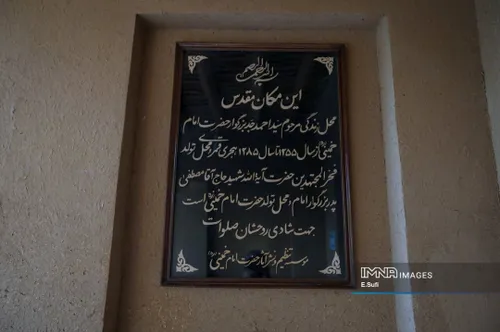 بسم الله الرحمن الرحیم
این مکان مقدس
محل زندگی مرحوم سید احمد جد بزرگوار حضرت امام
خمینی از سال ۱۲۵۵ تا سال ۱۲۸۵ هجری قمری و محل تولد
فخرالمجتهدین حضرت آیة الله شهید حاج آقا مصطفی
پدر بزرگوار امام و محل تولد حضرت امام خمینی است
جهت شادی روحشان صلوات
موسسه تنظیم و نشر آثار حضرت امام خمینی
IMNA IMAGES
E.Sufi